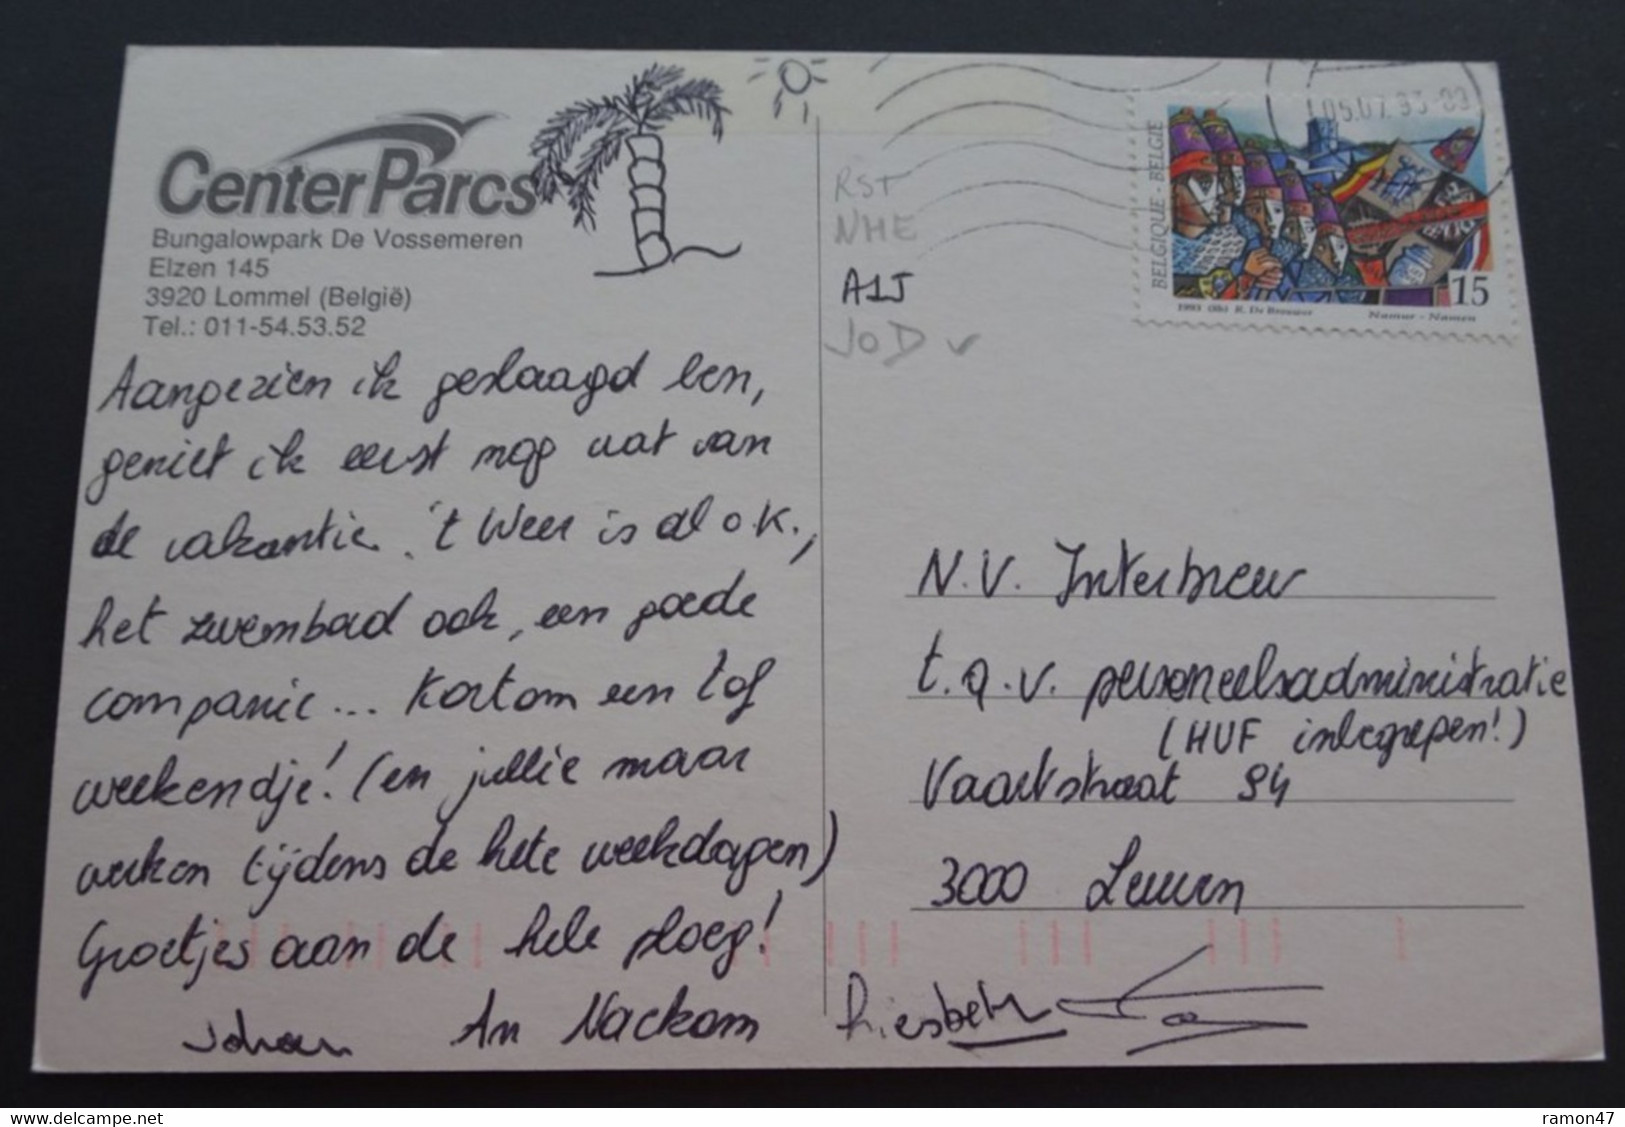 Center Parcs
Bungalowpark De Vossemeren
Elzen 145
3920 Lommel (België)
Tel.: 011-54.53.52
Aangezien ik geslaagd ben,
geniet ik eerst nog wat van
de vakantie. 't Weer is al o.k.,
het zwembad ook, een goede
companie... Kortom een tof
weekendje! (en jullie maar
werken tijdens de hete weekdagen)
Groetjes aan de hele ploeg!
Johan An Nackom
Liesbeth
RST
NHE
A1J
JOD v
05.07.93-09
BELGIQUE - BELGIË
15
1993 R. De Brouwer Namur - Namen
N.V. Interbrew
t.a.v. personeelsadministratie
(HUF inbegrepen!)
Vaartstraat 94
3000 Leuven
ramon47